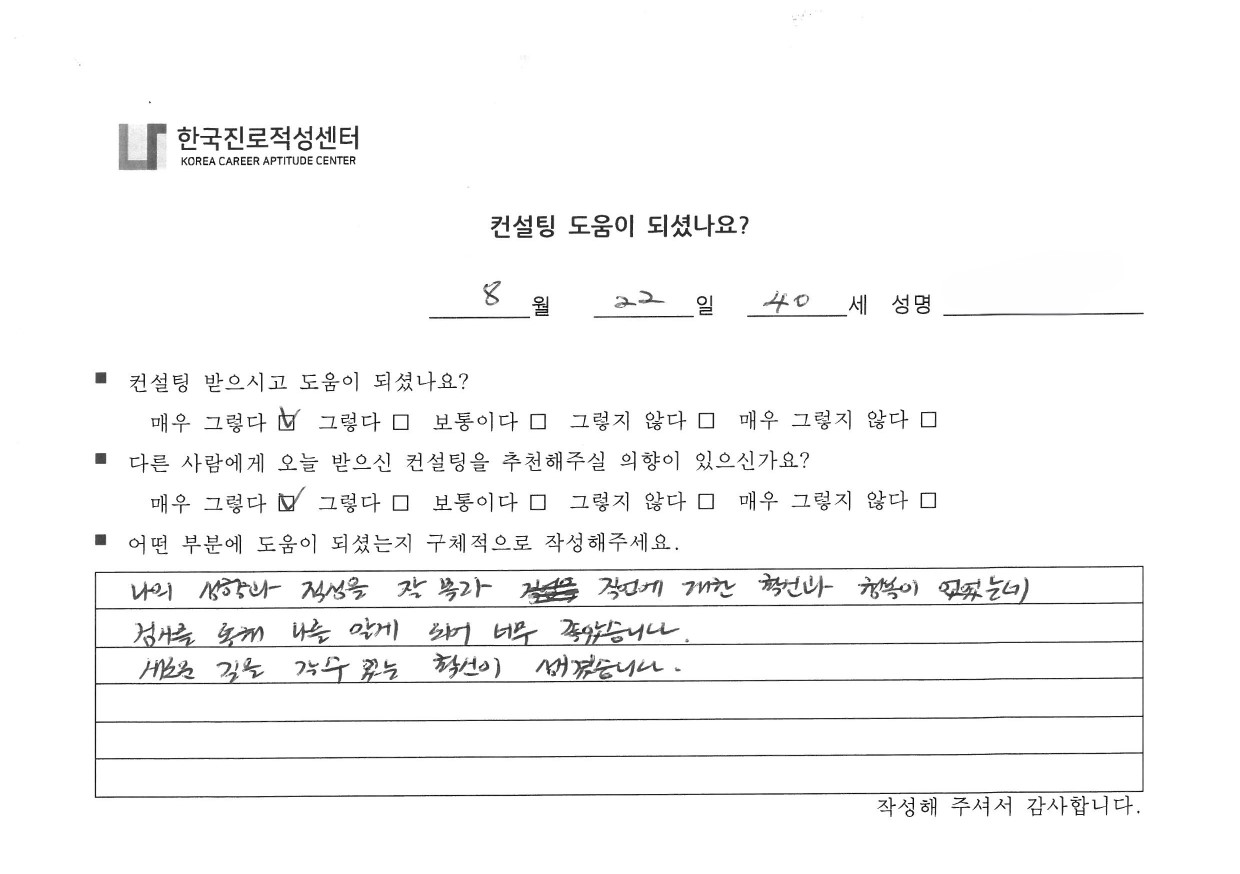 한국진로적성센터
KOREA CAREER APTITUDE CENTER
컨설팅 도움이 되셨나요?
8 월 22 일 40 세 성명
■ 컨설팅 받으시고 도움이 되셨나요?
매우 그렇다 ☑ 그렇다 □ 보통이다 □ 그렇지 않다 □ 매우 그렇지 않다 □
■ 다른 사람에게 오늘 받으신 컨설팅을 추천해주실 의향이 있으신가요?
매우 그렇다 ☑ 그렇다 □ 보통이다 □ 그렇지 않다 □ 매우 그렇지 않다 □
■ 어떤 부분에 도움이 되셨는지 구체적으로 작성해주세요.
나의 성향과 적성을 잘 몰라 직업에 대한 확신과 행복이 없었는데
검사를 통해 나를 알게 되어 너무 좋았습니다.
새로운 길을 갈수 있는 확신이 생겼습니다.
작성해 주셔서 감사합니다.